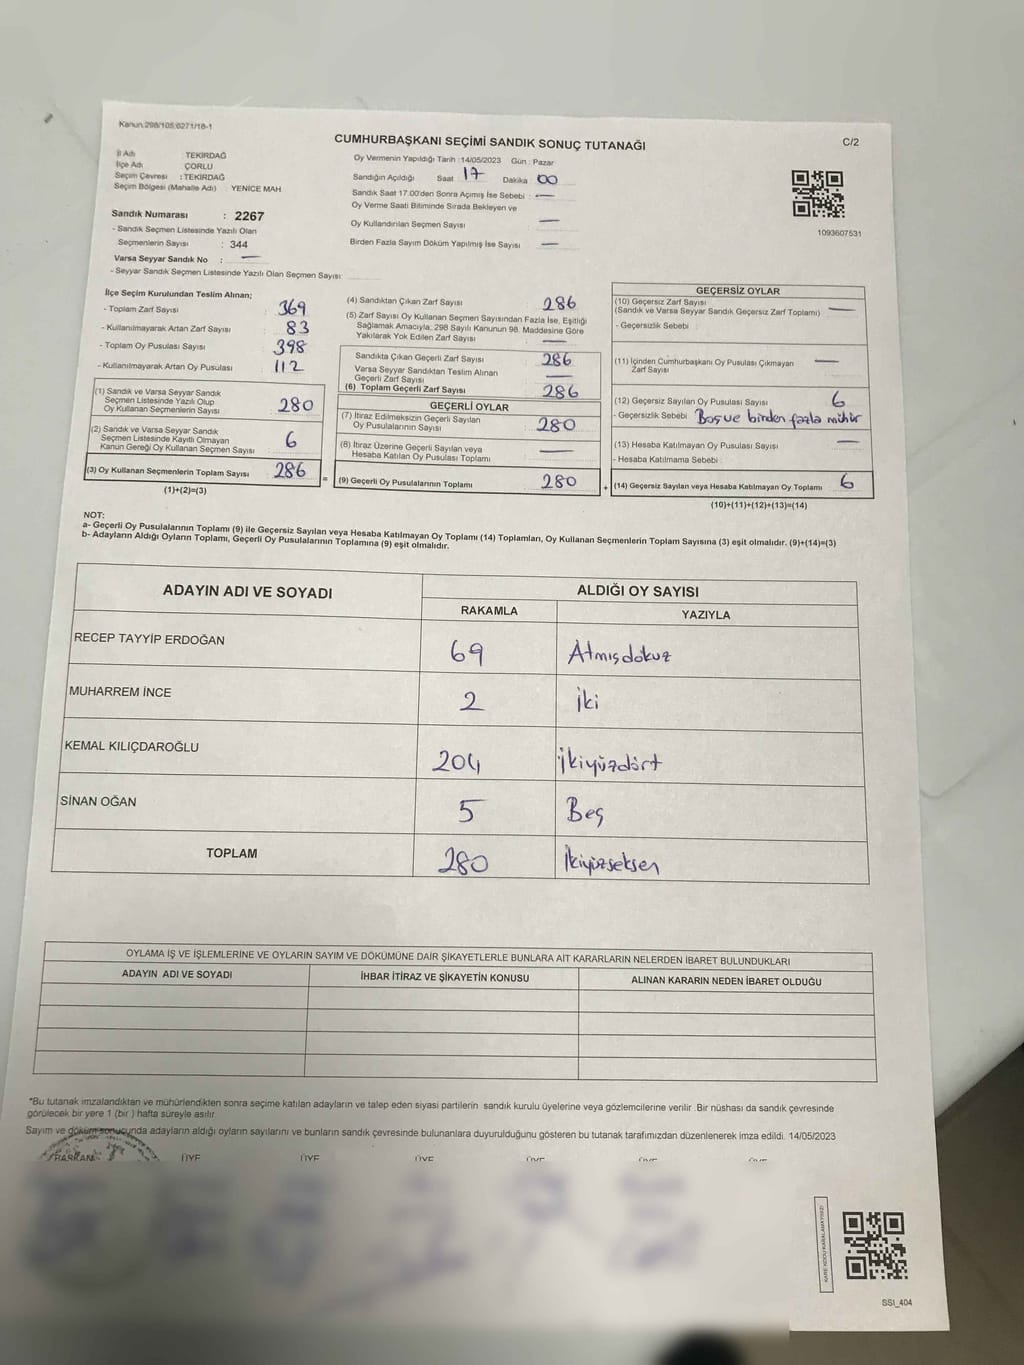 Kanun:298/105;6271/18-1
CUMHURBAŞKANI SEÇİMİ SANDIK SONUÇ TUTANAĞI
C/2
İl Adı TEKİRDAĞ
İlçe Adı ÇORLU
Seçim Çevresi : TEKİRDAĞ
Seçim Bölgesi (Mahalle Adı) : YENİCE MAH
Sandık Numarası : 2267
- Sandık Seçmen Listesinde Yazılı Olan
Seçmenlerin Sayısı : 344
Varsa Seyyar Sandık No : —
- Seyyar Sandık Seçmen Listesinde Yazılı Olan Seçmen Sayısı:
Oy Vermenin Yapıldığı Tarih :14/05/2023 Gün : Pazar
Sandığın Açıldığı Saat 17 Dakika 00
Sandık Saat 17:00'den Sonra Açımış İse Sebebi : —
Oy Verme Saati Bitiminde Sırada Bekleyen ve
Oy Kullandırılan Seçmen Sayısı —
Birden Fazla Sayım Döküm Yapılmış İse Sayısı —
1093607531
İlçe Seçim Kurulundan Teslim Alınan;
- Toplam Zarf Sayısı : 369
- Kullanılmayarak Artan Zarf Sayısı : 83
- Toplam Oy Pusulası Sayısı : 398
- Kullanılmayarak Artan Oy Pusulası : 112
(1) Sandık ve Varsa Seyyar Sandık
Seçmen Listesinde Yazılı Olup
Oy Kullanan Seçmenlerin Sayısı : 280
(2) Sandık ve Varsa Seyyar Sandık
Seçmen Listesinde Kayıtlı Olmayan
Kanun Gereği Oy Kullanan Seçmen Sayısı : 6
(3) Oy Kullanan Seçmenlerin Toplam Sayısı : 286
(1)+(2)=(3)
=
(4) Sandıktan Çıkan Zarf Sayısı : 286
(5) Zarf Sayısı Oy Kullanan Seçmen Sayısından Fazla İse, Eşitliği
Sağlamak Amacıyla; 298 Sayılı Kanunun 98. Maddesine Göre
Yakılarak Yok Edilen Zarf Sayısı —
Sandıkta Çıkan Geçerli Zarf Sayısı : 286
Varsa Seyyar Sandıktan Teslim Alınan
Geçerli Zarf Sayısı —
(6) Toplam Geçerli Zarf Sayısı : 286
GEÇERLİ OYLAR
(7) İtiraz Edilmeksizin Geçerli Sayılan
Oy Pusulalarının Sayısı : 280
(8) İtiraz Üzerine Geçerli Sayılan veya
Hesaba Katılan Oy Pusulası Toplamı : —
(9) Geçerli Oy Pusulalarının Toplamı : 280
+
GEÇERSİZ OYLAR
(10) Geçersiz Zarf Sayısı
(Sandık ve Varsa Seyyar Sandık Geçersiz Zarf Toplamı) : —
- Geçersizlik Sebebi
(11) İçinden Cumhurbaşkanı Oy Pusulası Çıkmayan
Zarf Sayısı —
(12) Geçersiz Sayılan Oy Pusulası Sayısı : 6
- Geçersizlik Sebebi : Boş ve birden fazla mühür
(13) Hesaba Katılmayan Oy Pusulası Sayısı : —
- Hesaba Katılmama Sebebi :
(14) Geçersiz Sayılan veya Hesaba Katılmayan Oy Toplamı : 6
(10)+(11)+(12)+(13)=(14)
NOT:
a- Geçerli Oy Pusulalarının Toplamı (9) ile Geçersiz Sayılan veya Hesaba Katılmayan Oy Toplamı (14) Toplamları, Oy Kullanan Seçmenlerin Toplam Sayısına (3) eşit olmalıdır. (9)+(14)=(3)
b- Adayların Aldığı Oyların Toplamı, Geçerli Oy Pusulalarının Toplamına (9) eşit olmalıdır.
ADAYIN ADI VE SOYADI
ALDIĞI OY SAYISI
RAKAMLA YAZIYLA
RECEP TAYYİP ERDOĞAN 69 Atmışdokuz
MUHARREM İNCE 2 İki
KEMAL KILIÇDAROĞLU 204 İkiyüzdört
SİNAN OĞAN 5 Beş
TOPLAM 280 İkiyüzseksen
OYLAMA İŞ VE İŞLEMLERİNE VE OYLARIN SAYIM VE DÖKÜMÜNE DAİR ŞİKAYETLERLE BUNLARA AİT KARARLARIN NELERDEN İBARET BULUNDUKLARI
ADAYIN ADI VE SOYADI İHBAR İTİRAZ VE ŞİKAYETİN KONUSU ALINAN KARARIN NEDEN İBARET OLDUĞU
*Bu tutanak imzalandıktan ve mühürlendikten sonra seçime katılan adayların ve talep eden siyasi partilerin sandık kurulu üyelerine veya gözlemcilerine verilir. Bir nüshası da sandık çevresinde
görülecek bir yere 1 (bir ) hafta süreyle asılır.
Sayım ve döküm sonucunda adayların aldığı oyların sayılarını ve bunların sandık çevresinde bulunanlara duyurulduğunu gösteren bu tutanak tarafımızdan düzenlenerek imza edildi. 14/05/2023
BAŞKAN ÜYE ÜYE ÜYE ÜYE ÜYE
SSI_404